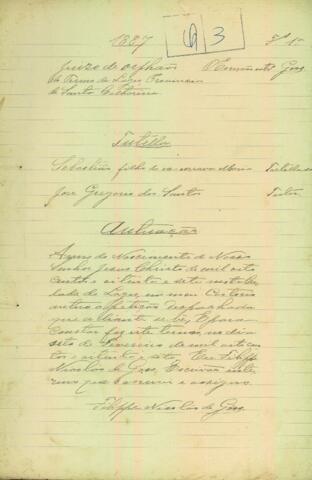 1887
63
Fl 1
Juizo de orphãos
do Termo de Lages Provincia
de Santa Catharina
O Escrivão Gos
Tutella
Sebastião filho da ex escrava Maria
Tutellado
José Gregorio dos Santos
Tutor
Autuação
Anno do Nascimento de Nosso
Senhor Jesus Christo de mil oito
centos e oitenta e sete nesta Ci
dade de Lages, em meu Cartorio
autuo a petição
que adiante se vê; E para
constar faço este termo, aos
sete de Fevereiro de mil oito cen
tos e oitenta e sete. Eu Filippe
Nicolao de Goss, Escrivão inte
rino que escrevi e assigno.
Filippe Nicolao de Goss